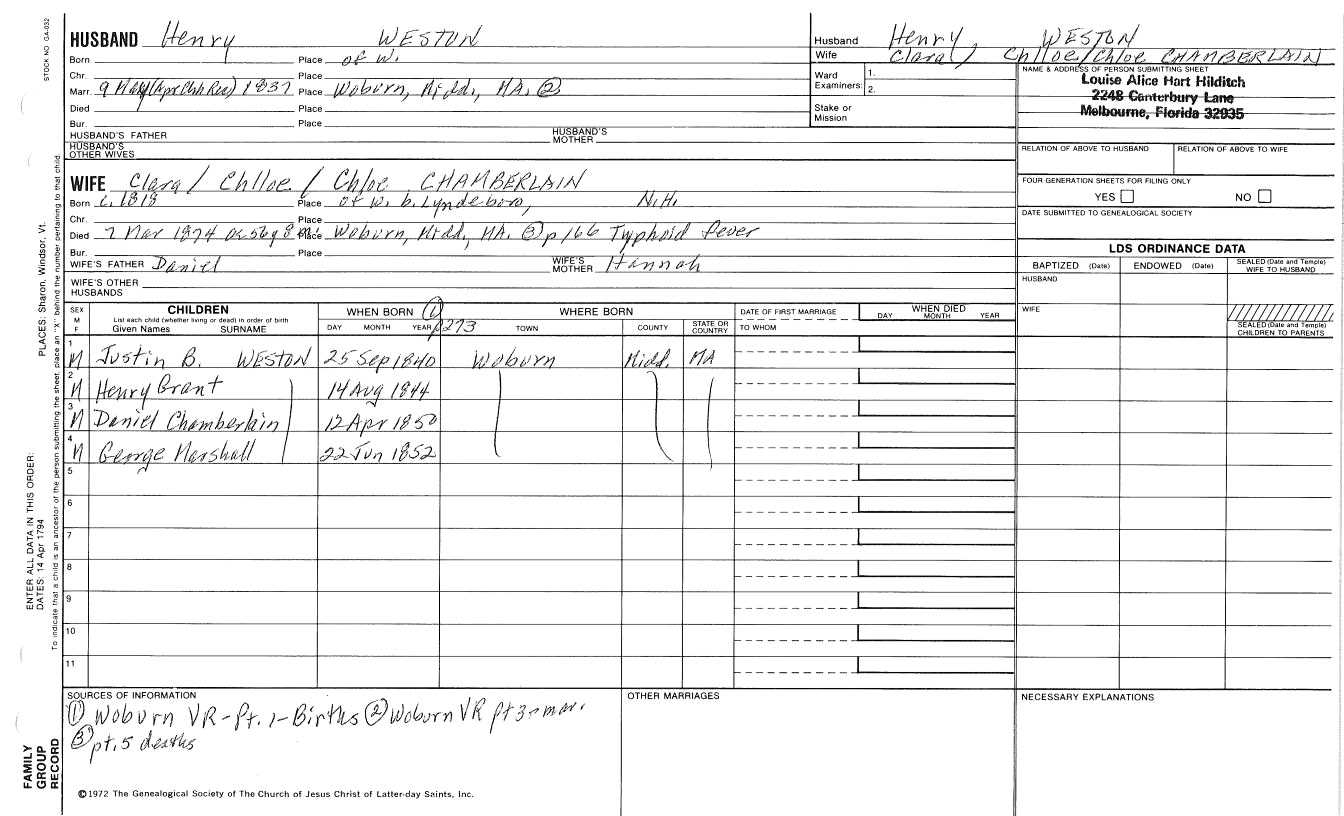 STOCK NO GA-032
HUSBAND Henry WESTON
Born Place of W.
Chr. Place
Marr. 9 May (Apr Chh Rec) 1837 Place Woburn, Midd, MA. ②
Died Place
Bur. Place
HUSBAND'S FATHER HUSBAND'S MOTHER
HUSBAND'S OTHER WIVES
Husband Henry, WESTON
Wife Clara / Chlloe / Chloe CHAMBERLAIN
Ward Examiners: 1.
2.
Stake or Mission
NAME & ADDRESS OF PERSON SUBMITTING SHEET
Louise Alice Hart Hilditch
2248 Canterbury Lane
Melbourne, Florida 32935
RELATION OF ABOVE TO HUSBAND RELATION OF ABOVE TO WIFE
FOUR GENERATION SHEETS FOR FILING ONLY
YES NO
DATE SUBMITTED TO GENEALOGICAL SOCIETY
WIFE Clara / Chlloe / Chloe CHAMBERLAIN
Born c. 1818 Place of W. b. Lyndeboro, N.H.
Chr. Place
Died 7 Mar 1874 ae 56y 8m. Place Woburn, Midd, MA. ③ p 166 Typhoid fever
Bur. Place
WIFE'S FATHER Daniel WIFE'S MOTHER Hannah
WIFE'S OTHER HUSBANDS
LDS ORDINANCE DATA
BAPTIZED (Date) ENDOWED (Date) SEALED (Date and Temple) WIFE TO HUSBAND
HUSBAND
WIFE
SEALED (Date and Temple) CHILDREN TO PARENTS
SEX M F CHILDREN WHEN BORN ① WHERE BORN DATE OF FIRST MARRIAGE WHEN DIED
List each child (whether living or dead) in order of birth
Given Names SURNAME DAY MONTH YEAR p273 TOWN COUNTY STATE OR COUNTRY TO WHOM DAY MONTH YEAR
1 M Justin B. WESTON 25 Sep 1840 Woburn Midd. MA
2 M Henry Grant 14 Aug 1844
3 M Daniel Chamberlain 12 Apr 1850
4 M George Marshall 22 Jun 1852
5
6
7
8
9
10
11
SOURCES OF INFORMATION
① Woburn VR-Pt. 1-Births ② Woburn VR pt 3-mar.
③ pt. 5 deaths
OTHER MARRIAGES
NECESSARY EXPLANATIONS
©1972 The Genealogical Society of The Church of Jesus Christ of Latter-day Saints, Inc.
FAMILY GROUP RECORD
ENTER ALL DATA IN THIS ORDER:
DATES: 14 Apr 1794
PLACES: Sharon, Windsor, Vt.
To indicate that a child is an ancestor of the person submitting the sheet, place an "X" behind the number pertaining to that child.